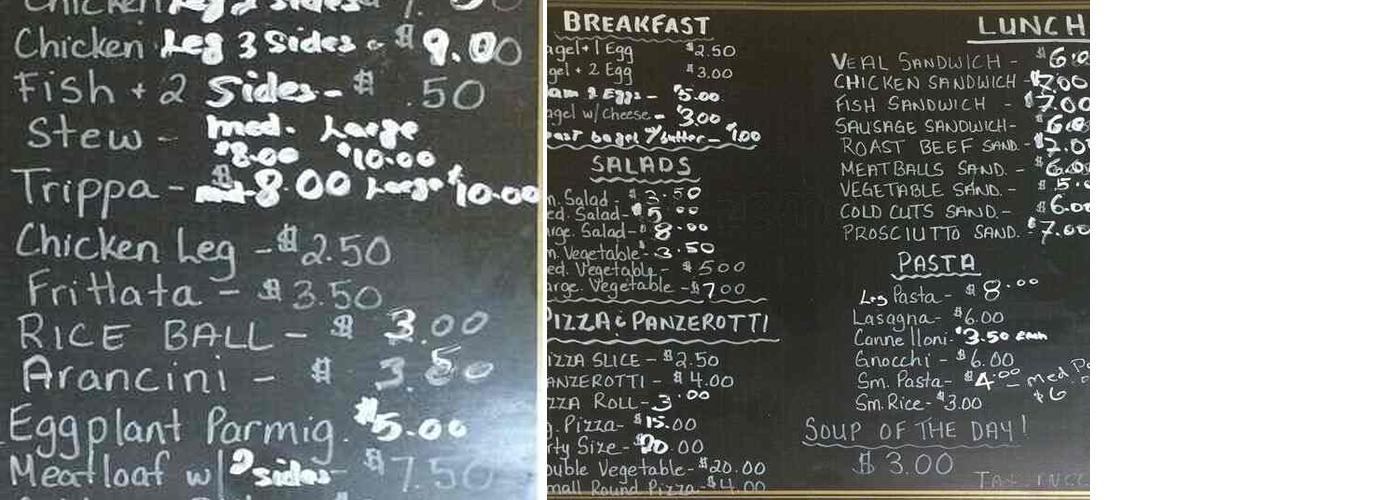 Chicken Leg 2 Sides
Chicken Leg 3 Sides - $9.00
Fish + 2 Sides - $ .50
Stew - med. Large
$8.00 $10.00
Trippa - $8.00 Large $10.00
Chicken Leg - $2.50
Frittata - $3.50
RICE BALL - $3.00
Arancini - $3.50
Eggplant Parmig. $5.00
Meatloaf w/ 2 sides - $7.50
BREAKFAST
agel + 1 Egg $2.50
gel + 2 Egg $3.00
am 2 Eggs - $5.00
agel w/ Cheese - $3.00
oast bagel w/ butter - $1.00
SALADS
m. Salad - $3.50
ed. Salad - $5.00
arge. Salad - $8.00
m. Vegetable - 3.50
ed. Vegetable - $5.00
arge. Vegetable - $7.00
PIZZA & PANZEROTTI
IZZA SLICE - $2.50
ANZEROTTI - $4.00
ZZA ROLL - 3.00
g. Pizza - $15.00
rty Size - $20.00
ouble Vegetable - $20.00
mall Round Pizza - $4.00
LUNCH
VEAL SANDWICH - $6.00
CHICKEN SANDWICH - $7.00
FISH SANDWICH - $7.00
SAUSAGE SANDWICH - $6.00
ROAST BEEF SAND. - $7.00
MEATBALLS SAND. - $6.00
VEGETABLE SAND. - $5.
COLD CUTS SAND. - $6.00
PROSCIUTTO SAND. - $7.00
PASTA
Lrg Pasta - $8.00
Lasagna - $6.00
Cannelloni - $3.50 each
Gnocchi - $6.00
Sm. Pasta - $4.00 - med Pa
$6
Sm. Rice - $3.00
SOUP OF THE DAY!
$3.00
TAX INCL